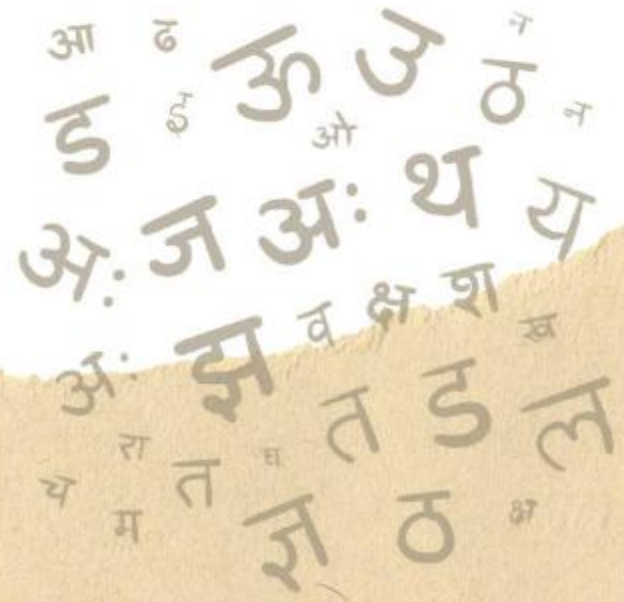 आ ढ ऊ उ न
ड ई ओ ठ न
अः ज अः थ य
अः झ व क्ष श ख
रा त ड ल
च म त घ
ज्ञ ठ क्ष